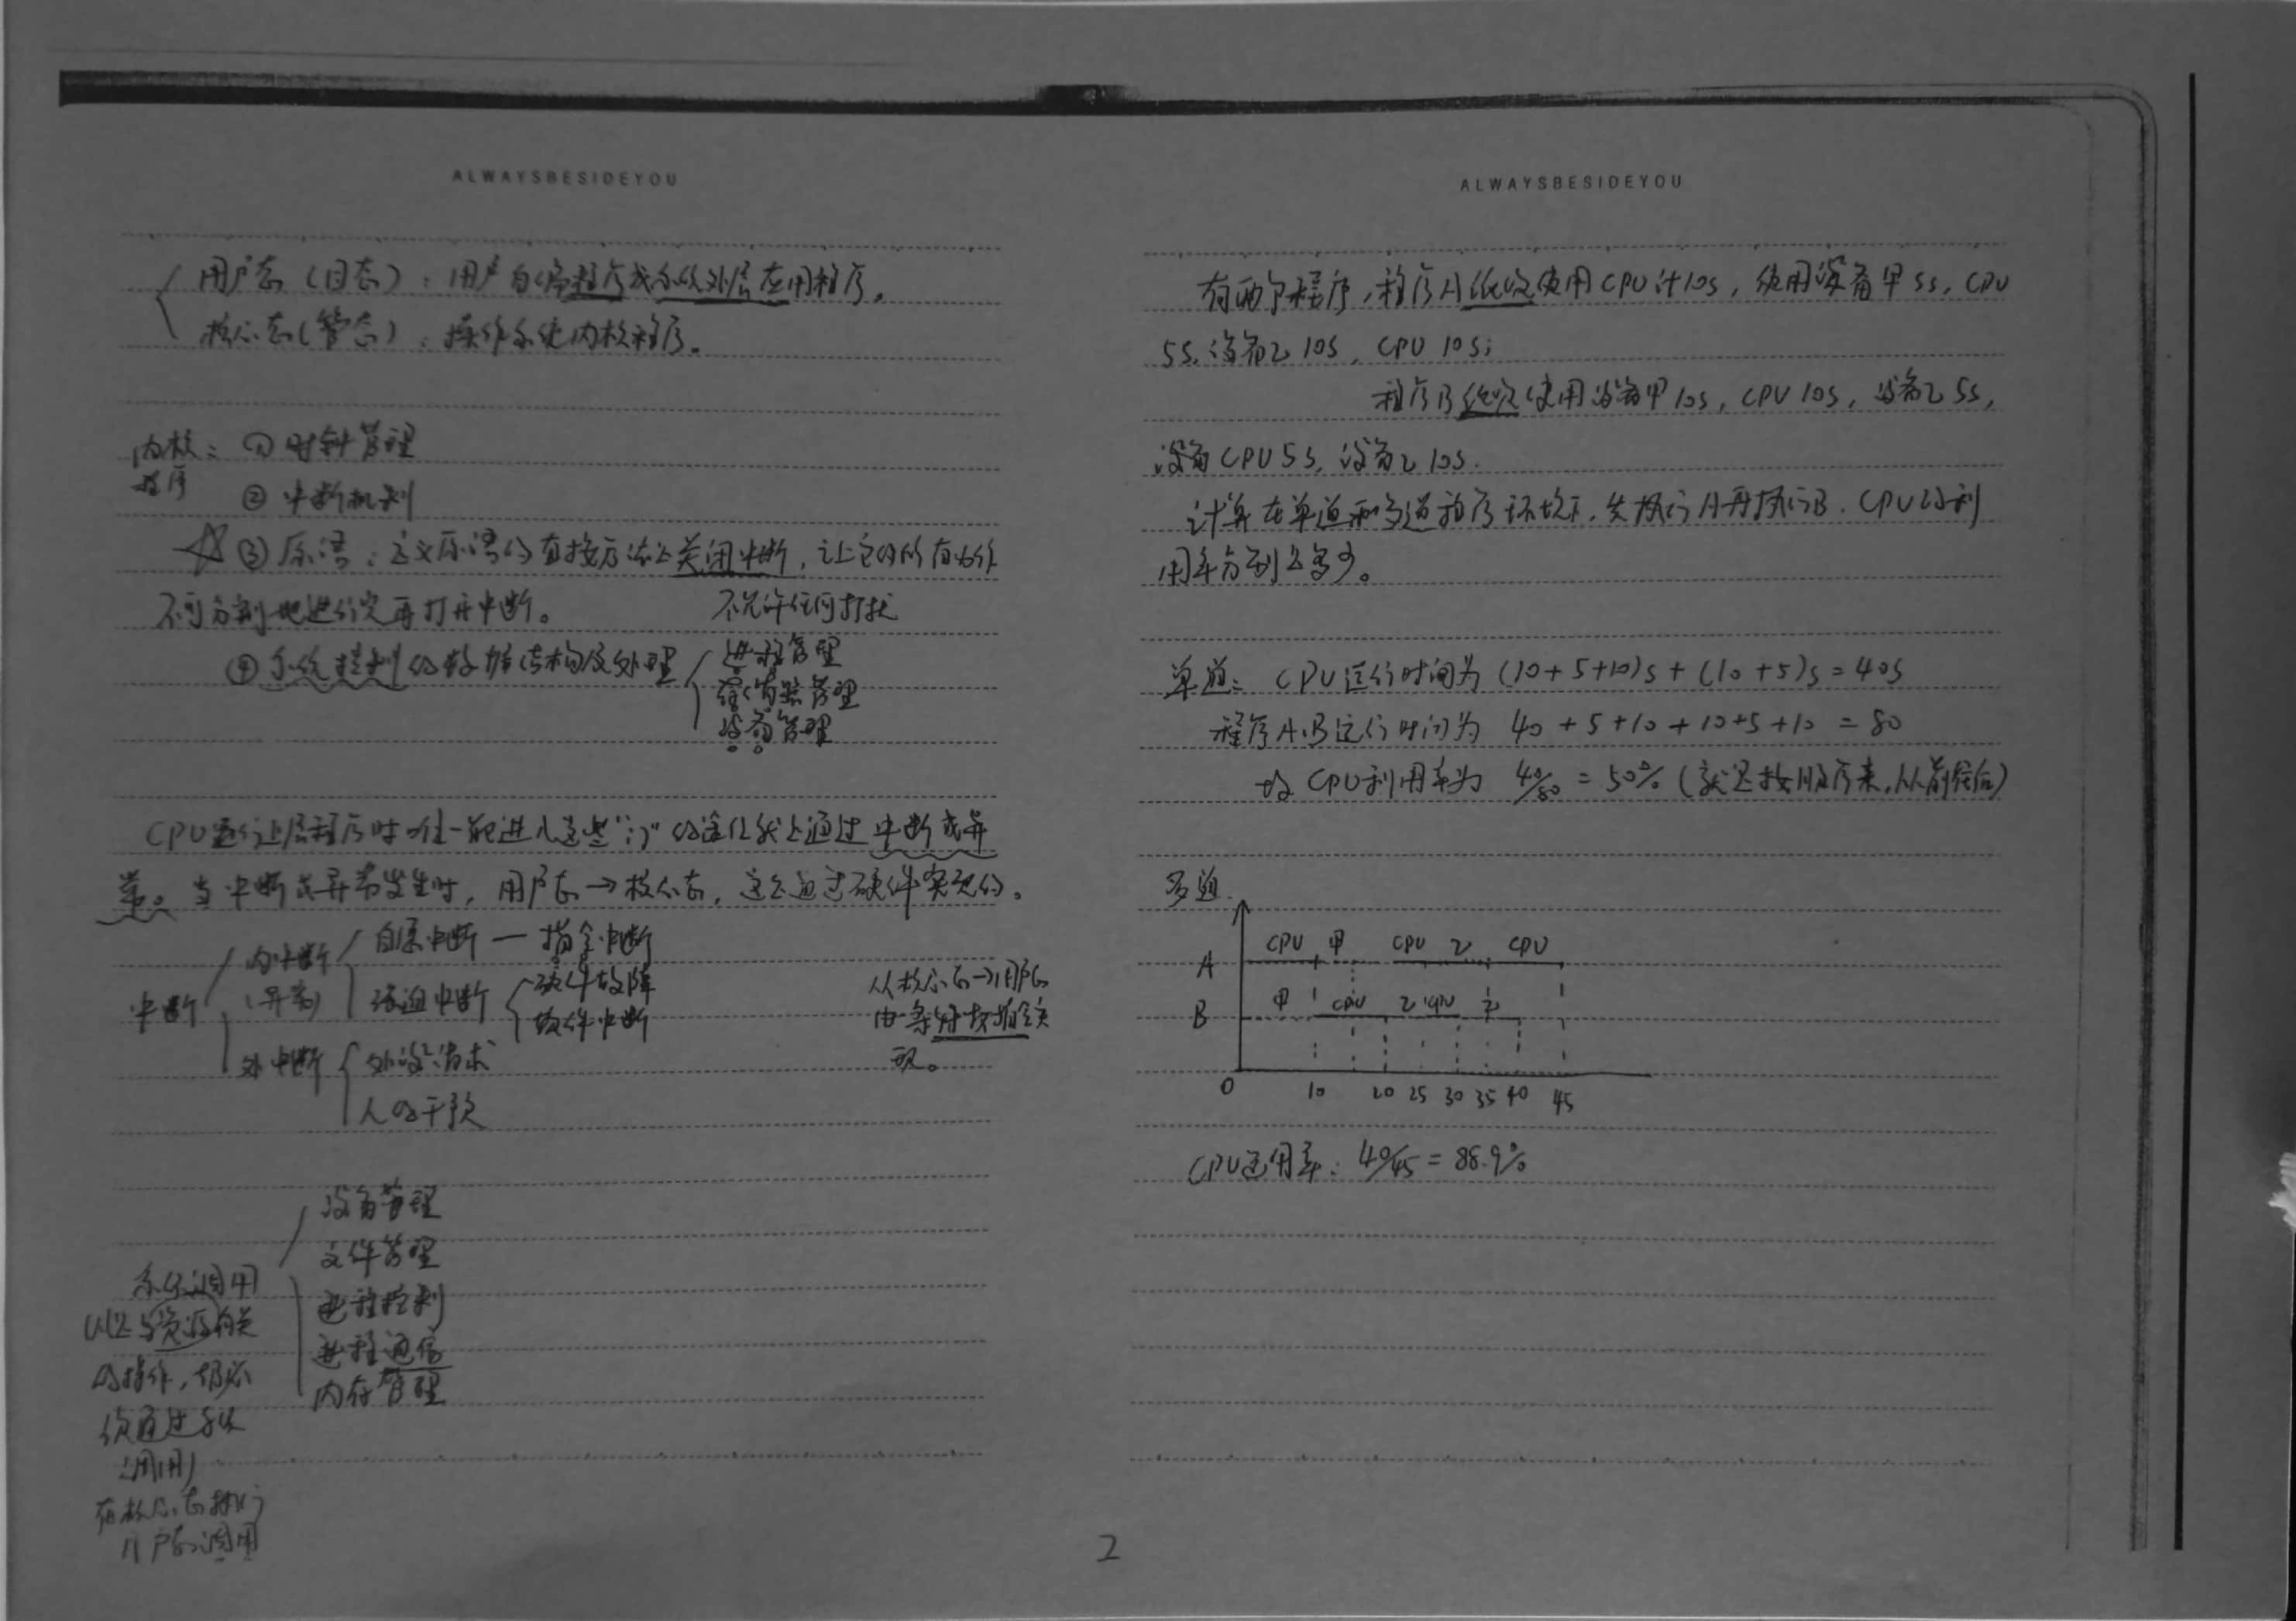 ALWAYSBESIDEYOU
用户态（目态）：用户自编程序或系统外层应用程序。
核心态（管态）：操作系统内核程序。
内核程序：①时钟管理
②中断机制
☆③原语：定义原语的直接方法是关闭中断，让它的所有动作
不可分割地进行完再打开中断。 不允许任何打扰
④系统控制的数据结构及处理 进程管理
存储器管理
设备管理
CPU运行上层程序时唯一能进入这些"门"的途径就是通过中断或异
常。当中断或异常发生时，用户态→核心态，这是通过硬件实现的。
中断
内中断（异常）
自愿中断—指令中断
强迫中断
硬件故障
软件中断
外中断
外设请求
人的干预
从核心态→用户态
由特权指令实
现。
系统调用
设备管理
文件管理
进程控制
进程通信
内存管理
（凡是与资源有关
的操作，都必
须通过系统
调用）
在核心态执行
用户态调用
ALWAYSBESIDEYOU
有两个程序，程序A依次使用CPU计10s，使用设备甲5s，CPU
5s，设备乙10s，CPU 10s；
程序B依次使用设备甲10s，CPU 10s，设备乙5s，
设备CPU 5s，设备乙10s.
计算在单道和多道程序环境下，先执行A再执行B，CPU的利
用率分别是多少。
单道：CPU运行时间为 (10+5+10)s+(10+5)s=40s
程序A、B运行时间为 40+5+10+10+5+10=80
故CPU利用率为 40/80=50%（就是按顺序来，从前往后）
多道
A CPU 甲 CPU 乙 CPU
B 甲 CPU 乙 CPU 乙
0 10 20 25 30 35 40 45
CPU运用率：40/45=88.9%
2